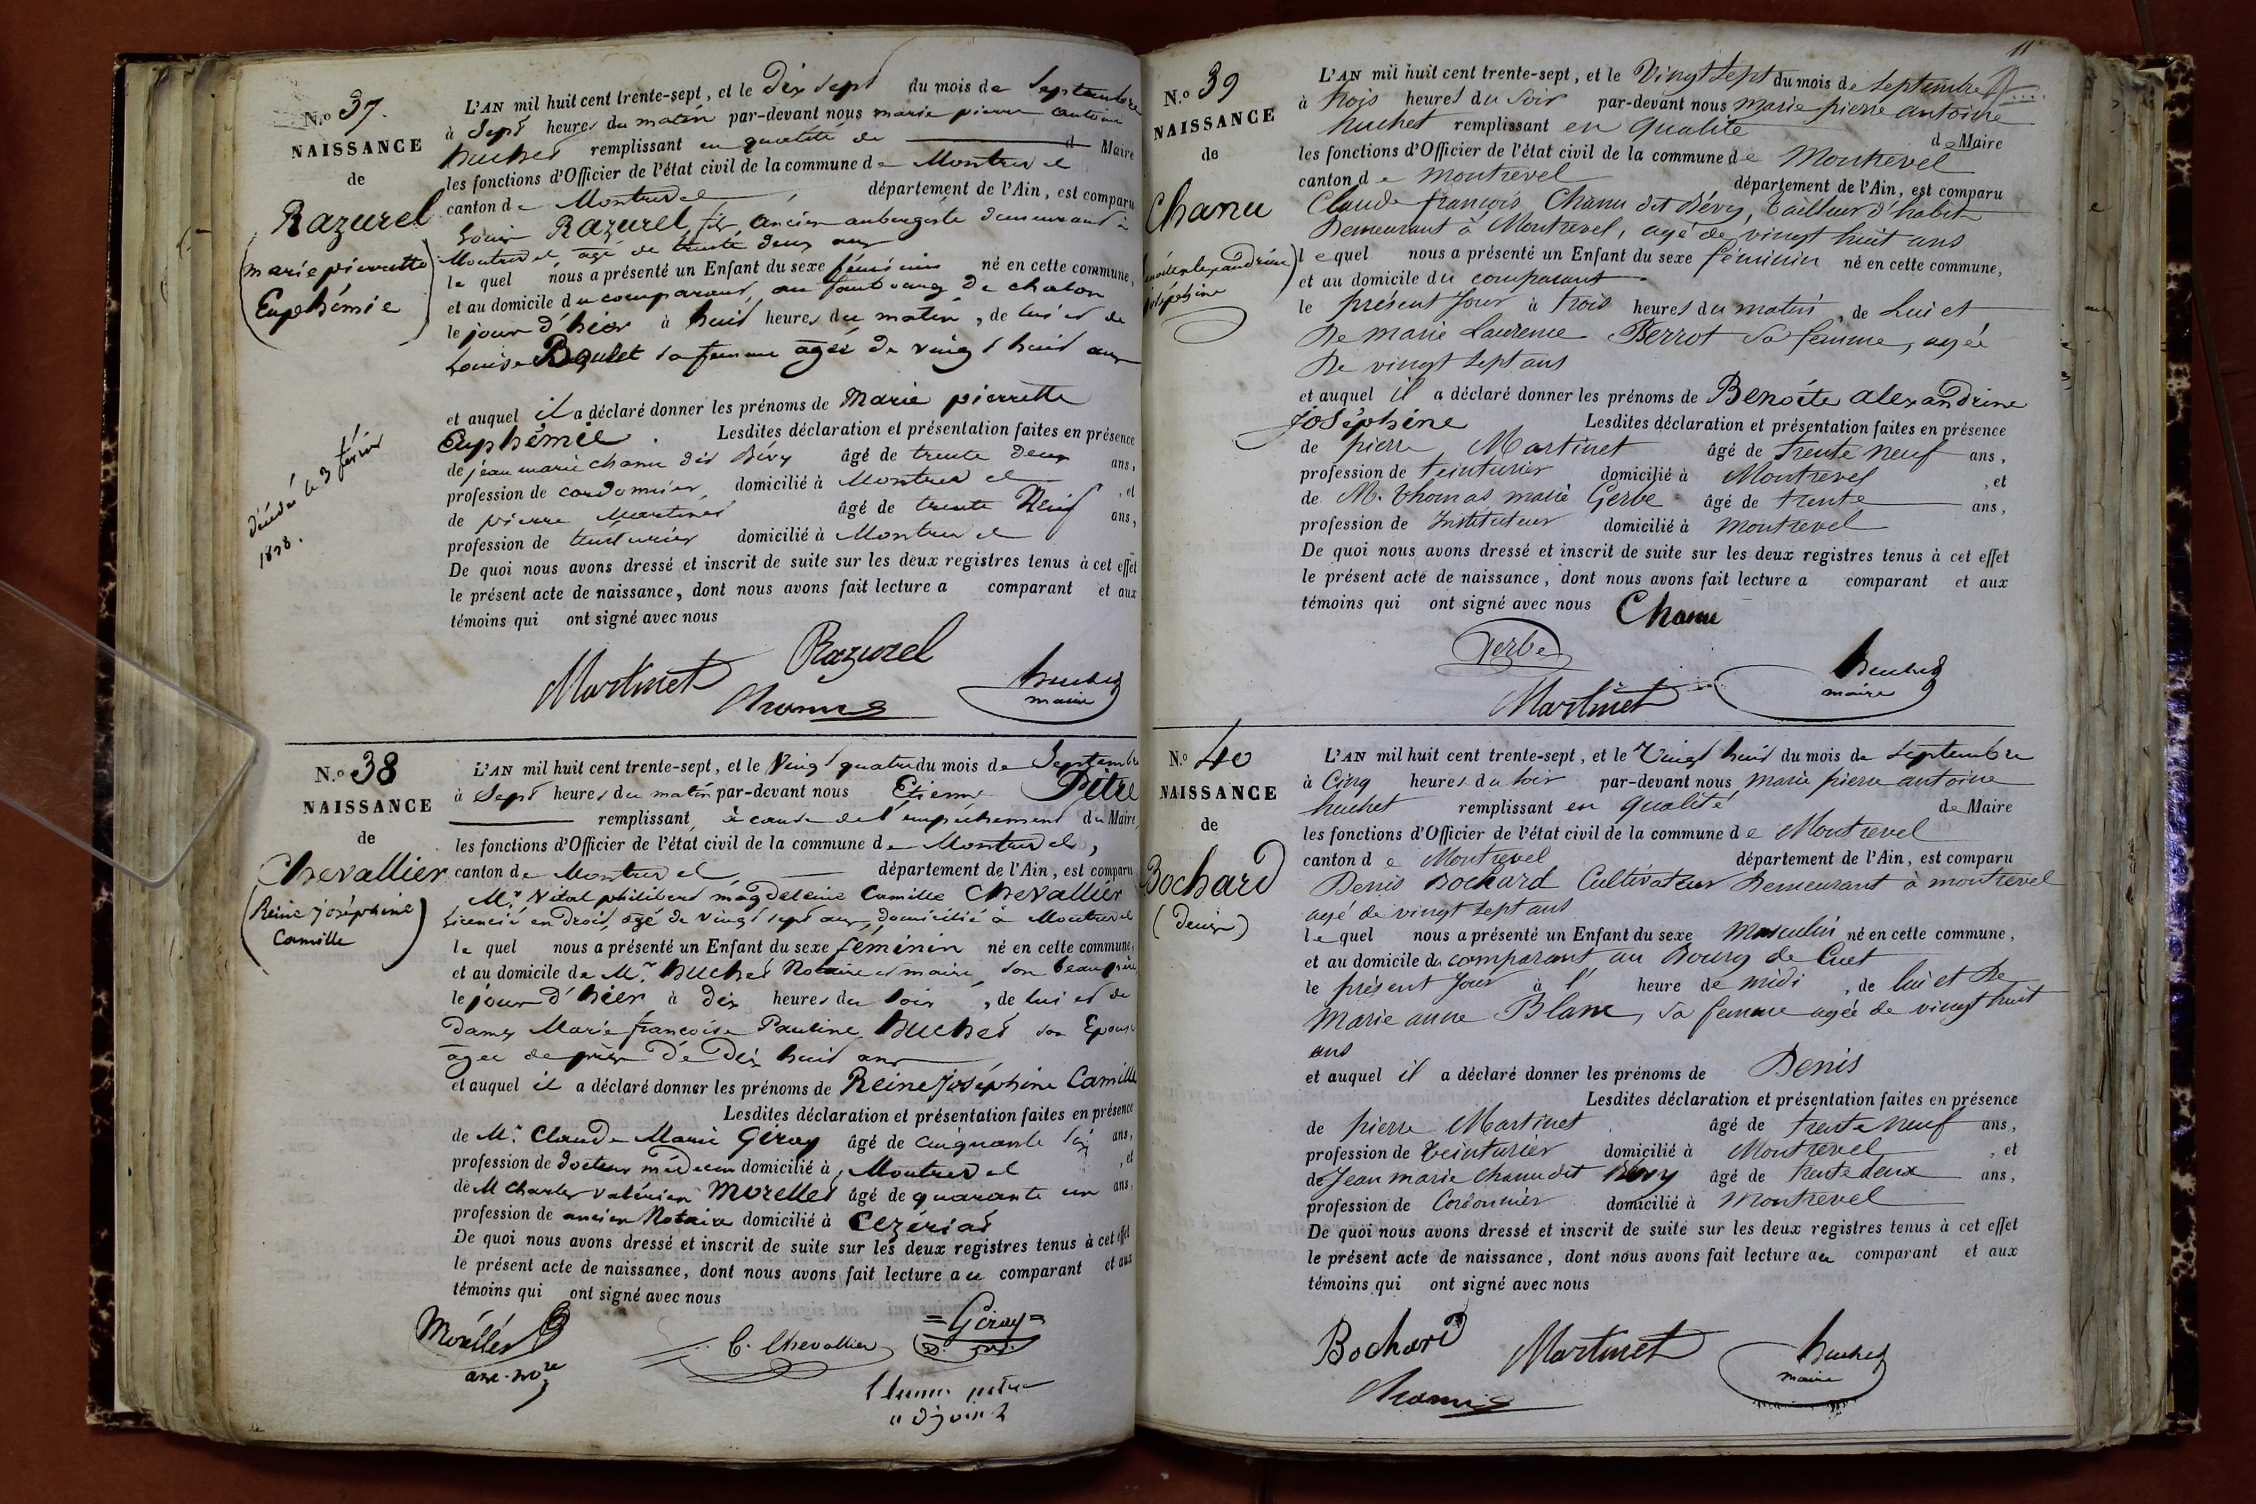 N.o 37.
NAISSANCE
de
Razurel
(marie pierrette
Euphémie)
décédé le 3 février
1838.
L'AN mil huit cent trente-sept, et le Dix sept du mois de Septembre
à Sept heures du matin par-devant nous marie pierre antoine
huchet remplissant en qualité de d Maire
les fonctions d'Officier de l'état civil de la commune de Montrevel
canton de Montrevel, département de l'Ain, est comparu
Louis Razurel fils, ancien aubergiste demeurant à
Montrevel, agé de trente deux ans
le quel nous a présenté un Enfant du sexe féminin né en cette commune,
et au domicile du comparant, au faubourg de chalon
le jour d'hier à huit heures du matin, de lui et de
Louise Boulet sa femme agée de vingt huit ans
et auquel il a déclaré donner les prénoms de Marie pierrette
Euphémie. Lesdites déclaration et présentation faites en présence
de jean marie chanu dit Bévy âgé de trente deux ans,
profession de cordonnier domicilié à Montrevel, et
de pierre Martinet âgé de trente Neuf ans,
profession de teinturier domicilié à Montrevel
De quoi nous avons dressé et inscrit de suite sur les deux registres tenus à cet effet
le présent acte de naissance, dont nous avons fait lecture a comparant et aux
témoins qui ont signé avec nous
Razurel
Martinet Chanu huchet
maire
N.o 38
NAISSANCE
de
Chevallier
(Reine joséphine
Camille)
L'AN mil huit cent trente-sept, et le Vingt quatre du mois de Septembre
à Sept heures du matin par-devant nous Etienne Pitre
remplissant à cause de l'empêchement du Maire,
les fonctions d'Officier de l'état civil de la commune de Montrevel,
canton de Montrevel département de l'Ain, est comparu
Mr. Vital philibert magdeleine Camille Chevallier
Licencié en Droit, agé de vingt sept ans, domicilié à Montrevel
le quel nous a présenté un Enfant du sexe féminin né en cette commune,
et au domicile de Mr. huchet Notaire et maire, son beau père,
le jour d'hier à dix heures du soir, de lui et de
Dame Marie françoise Pauline huchet son Epouse
agée de près de Dix huit ans
et auquel il a déclaré donner les prénoms de Reine Joséphine Camille
Lesdites déclaration et présentation faites en présence
de Mr. Claude Marie Giroy âgé de cinquante six ans,
profession de docteur médecin domicilié à Montrevel, et
de M Charles valérien Morellet âgé de quarante un ans,
profession de ancien Notaire domicilié à Cezériat
De quoi nous avons dressé et inscrit de suite sur les deux registres tenus à cet effet
le présent acte de naissance, dont nous avons fait lecture au comparant et aux
témoins qui ont signé avec nous
Morellet C. Chevallier =Giroy=
anc. nore
Etienne pitre
adjoint
11
N.o 39
NAISSANCE
de
Chanu
(benoite alexandrine
joséphine
L'AN mil huit cent trente-sept, et le Vingt Sept du mois de Septembre
à trois heures du Soir par-devant nous marie pierre antoine
huchet remplissant en qualité de Maire
les fonctions d'Officier de l'état civil de la commune de Montrevel
canton de montrevel département de l'Ain, est comparu
Claude françois Chanu dit Bévy, Tailleur d'habit
Demeurant à Montrevel, agé de vingt huit ans
le quel nous a présenté un Enfant du sexe féminin né en cette commune,
et au domicile du comparant
le présent Jour à trois heures du matin, de Lui et
De marie Laurence Perrot Sa femme, agée
De vingt Sept ans
et auquel il a déclaré donner les prénoms de Benoite alexandrine
Joséphine Lesdites déclaration et présentation faites en présence
de pierre Martinet âgé de trente neuf ans,
profession de teinturier domicilié à Montrevel, et
de M. thomas marie Gerbe âgé de trente ans,
profession de Instituteur domicilié à montrevel
De quoi nous avons dressé et inscrit de suite sur les deux registres tenus à cet effet
le présent acte de naissance, dont nous avons fait lecture a comparant et aux
témoins qui ont signé avec nous Chanu
Gerbe huchet
Martinet maire
N.o 40
NAISSANCE
de
Bochard
(Denis)
L'AN mil huit cent trente-sept, et le Vingt huit du mois de Septembre
à Cinq heures du soir par-devant nous marie pierre antoine
huchet remplissant en qualité de Maire
les fonctions d'Officier de l'état civil de la commune de Montrevel
canton de Montrevel département de l'Ain, est comparu
Denis Bochard Cultivateur Demeurant à montrevel
agé de vingt Sept ans
le quel nous a présenté un Enfant du sexe Masculin né en cette commune,
et au domicile du comparant au Bourg de Cuet
le présent Jour à l' heure de midi, de lui et De
Marie anne Blanc, sa femme agée de vingt huit
ans
et auquel il a déclaré donner les prénoms de Denis
Lesdites déclaration et présentation faites en présence
de pierre Martinet âgé de trente neuf ans,
profession de teinturier domicilié à Montrevel, et
de Jean marie Chanu dit Bévy âgé de trente deux ans,
profession de Cordonnier domicilié à Montrevel
De quoi nous avons dressé et inscrit de suite sur les deux registres tenus à cet effet
le présent acte de naissance, dont nous avons fait lecture au comparant et aux
témoins qui ont signé avec nous
Bochard Martinet huchet
maire
Chanu